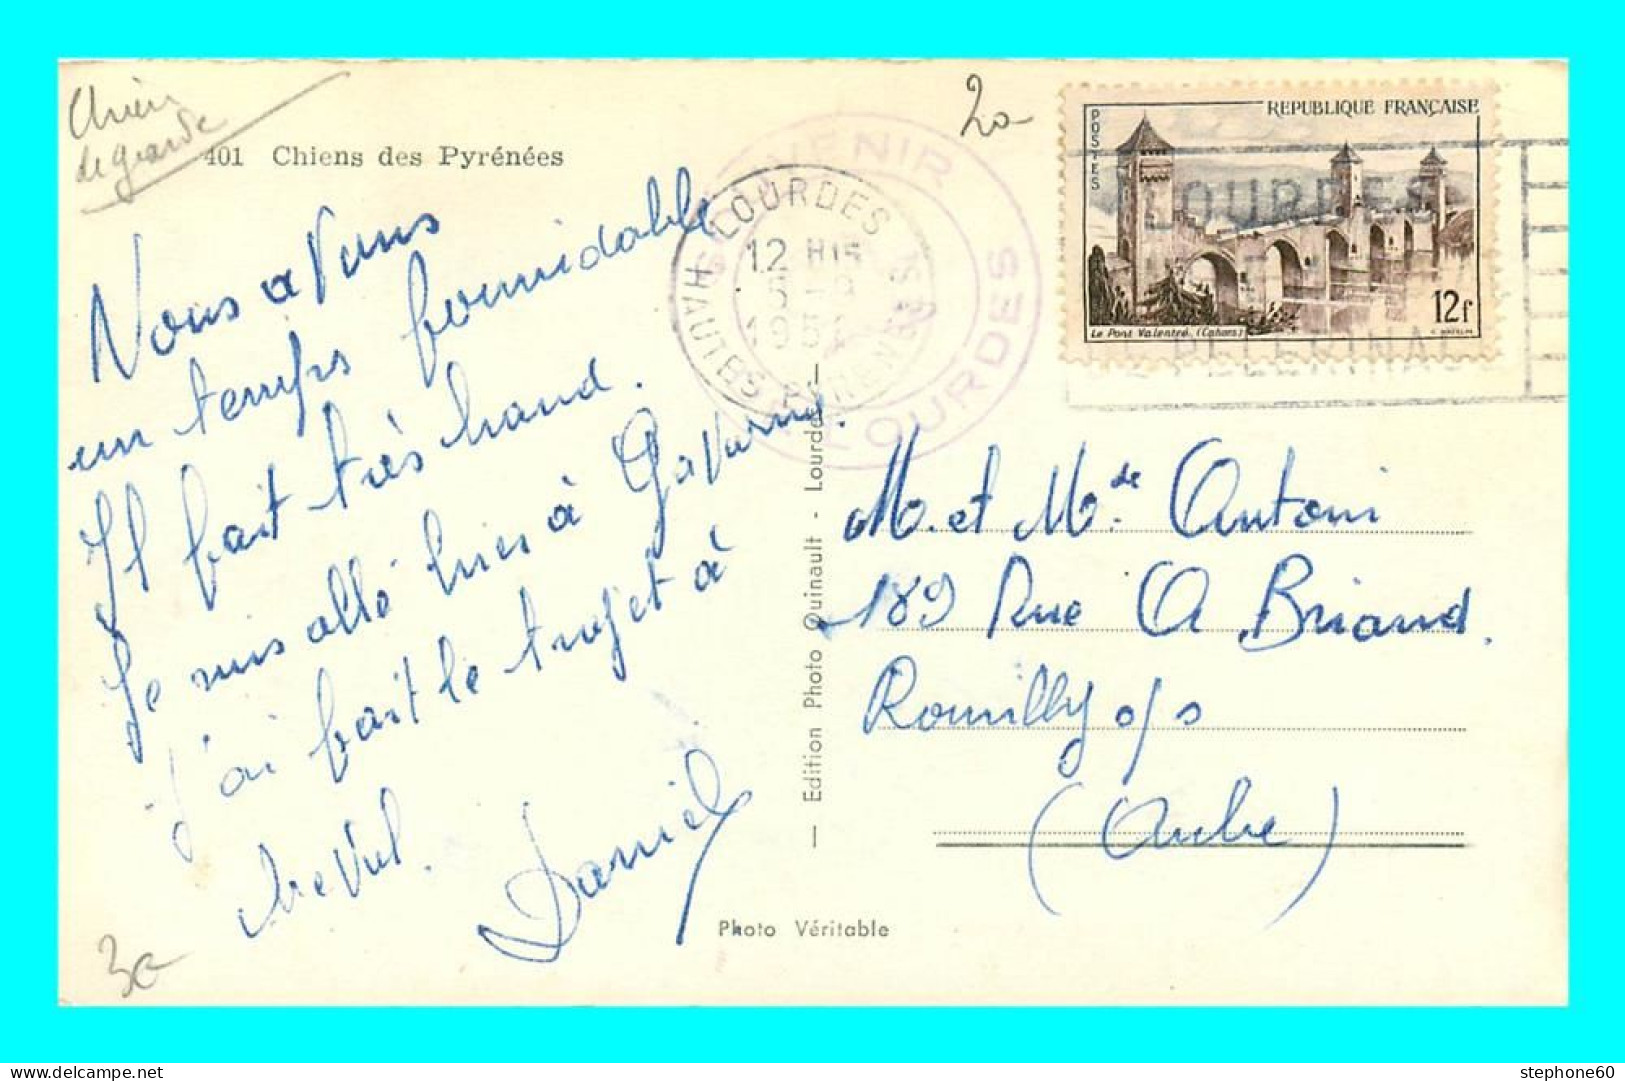 Chien
de garde
401 Chiens des Pyrénées
Nous avons
un temps formidable
Il fait très chaud.
Je suis allé hier à Gavarnie.
j'ai fait le trajet à
cheval.
Daniel
20
30
SOUVENIR
LOURDES
LOURDES
HAUTES PYRENEES
12 H15
REPUBLIQUE FRANÇAISE
POSTES
Le Pont Valentré. (Cahors)
12f
LOURDES
PELERINAGE
— Edition Photo Quinault - Lourdes —
M. et Mde Antoni
189 Rue A. Briand.
Romilly s/s
(Aube)
Photo Véritable
delcampe.net
stephone60